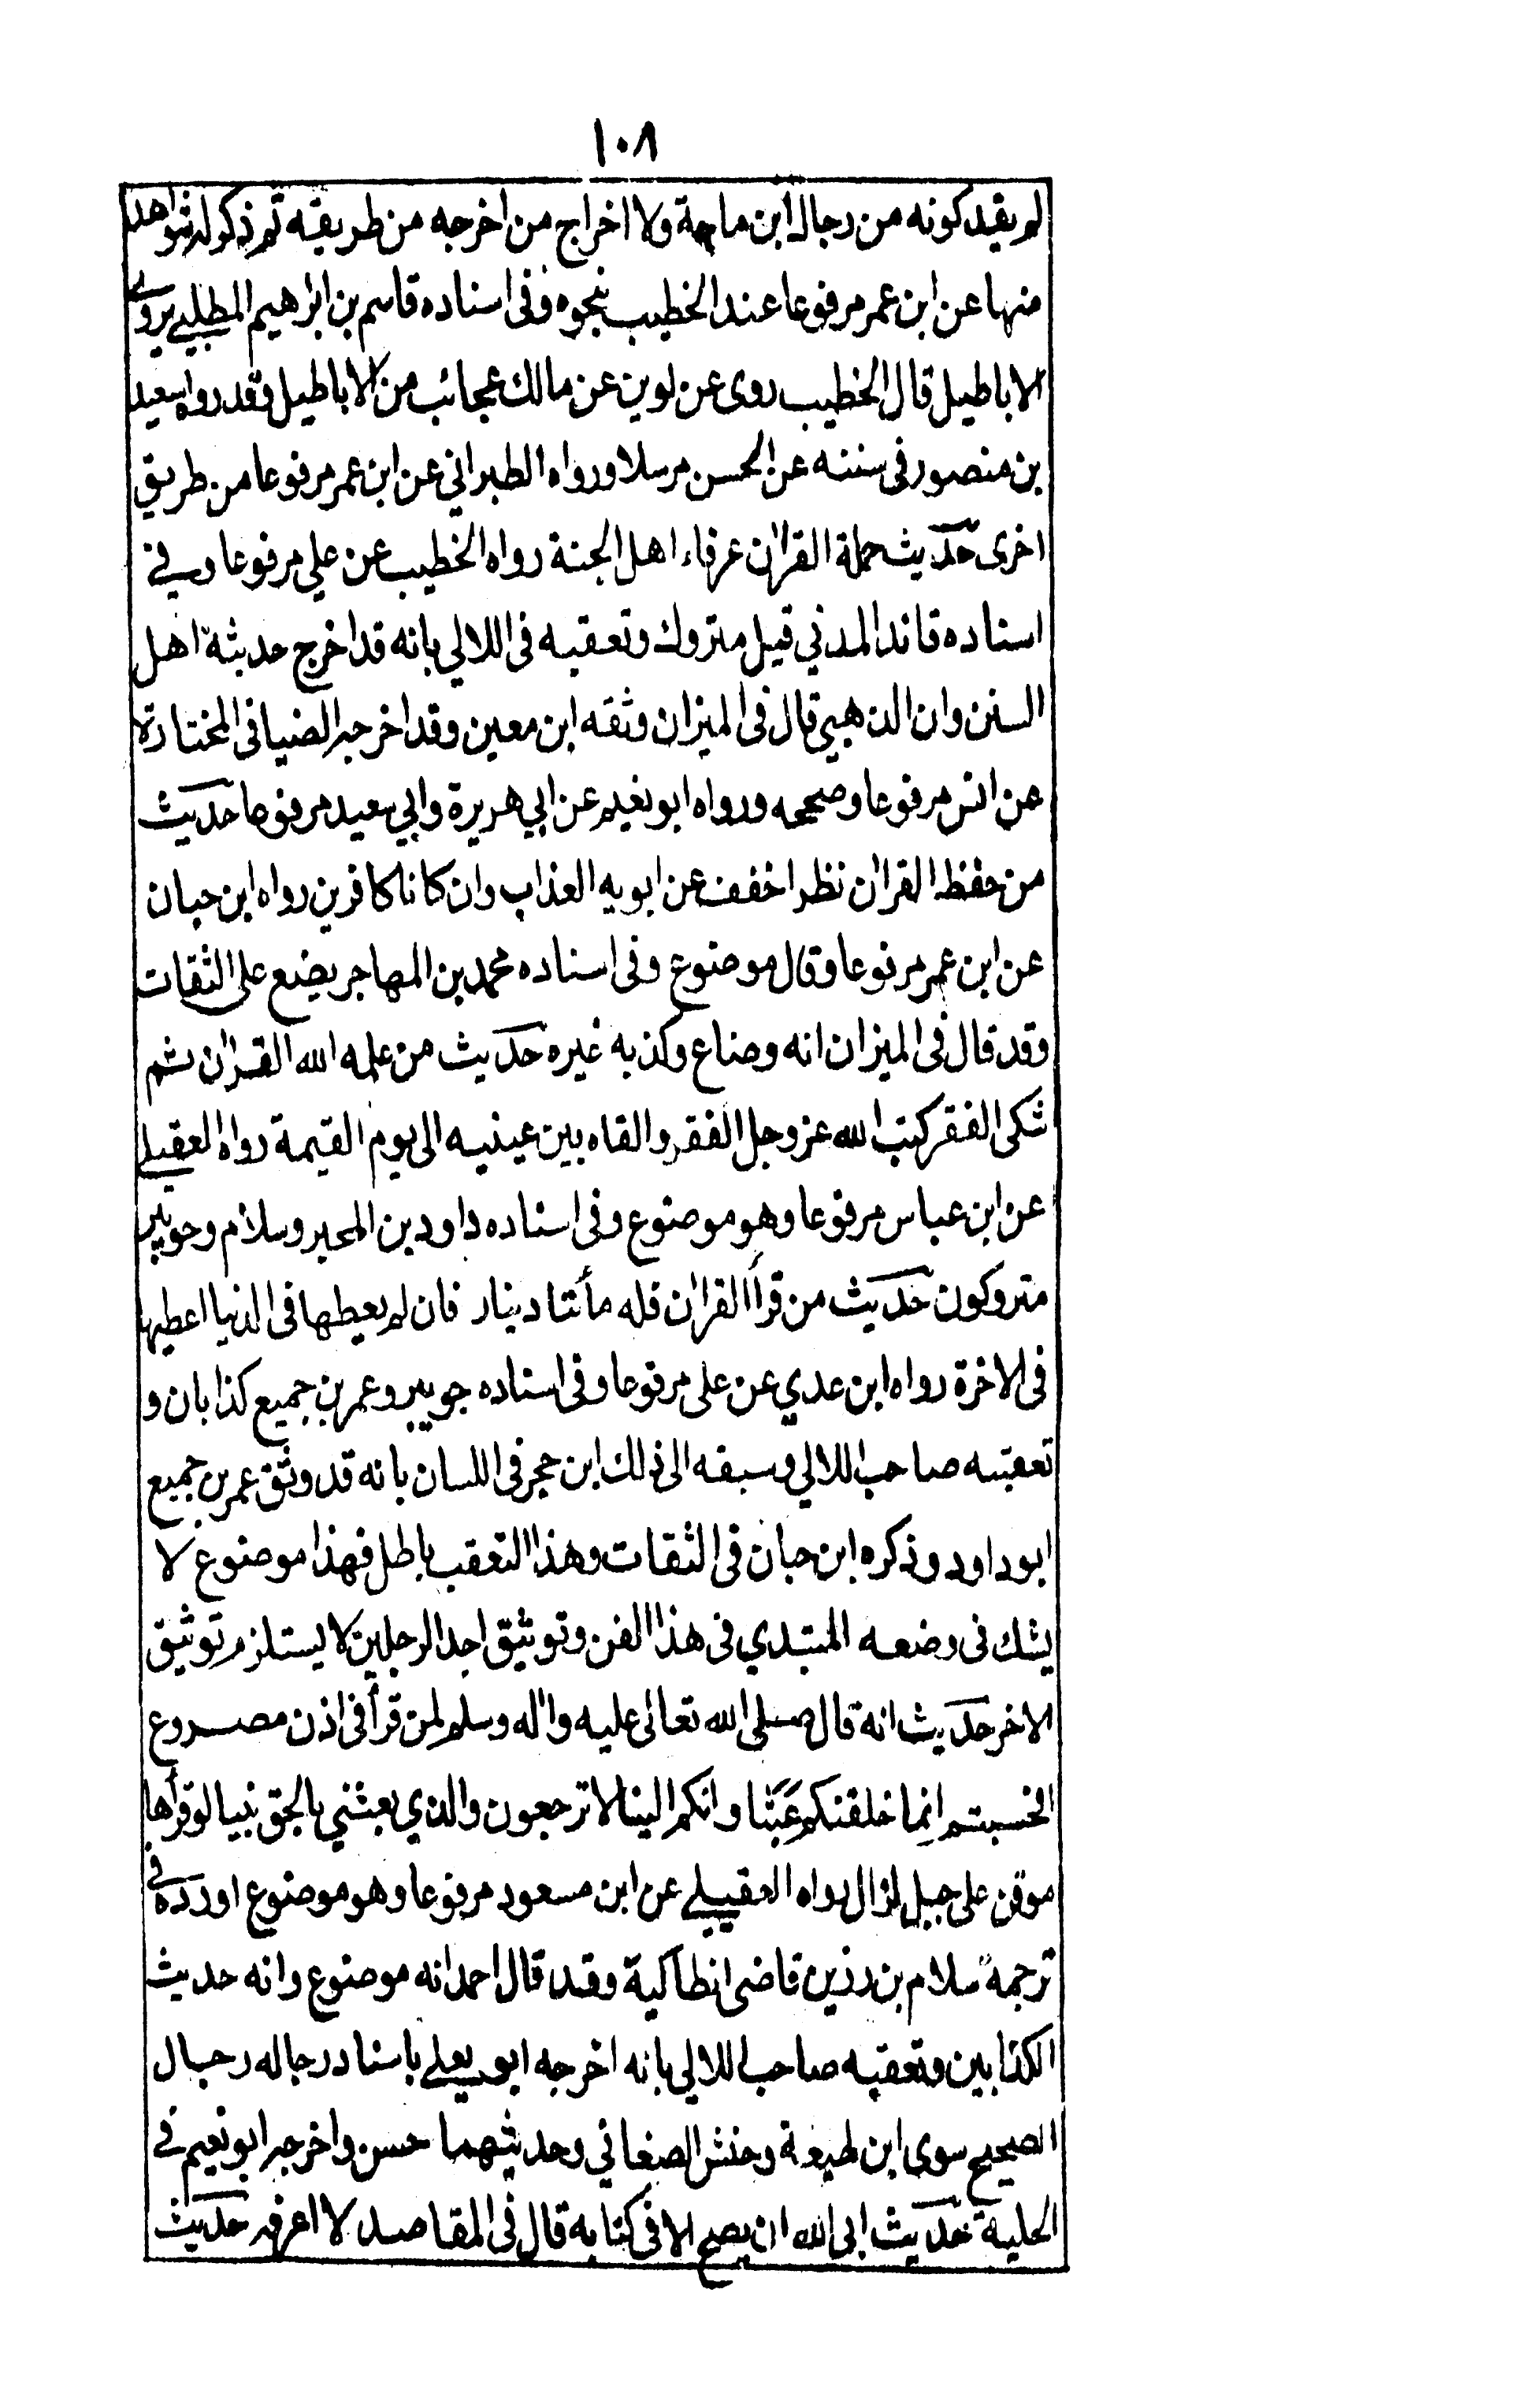 ١٠٨
لم يفد كونه من رجال ابن ماجة ولا اخراج من اخرجه من طريقه ثم ذكر له شواهد
منها عن ابن عمر مرفوعا عند الخطيب بنحوه وفى اسناده قاسم بن ابراهيم الملطي يروى
الاباطيل قال الخطيب روى عن لوين عن مالك عجائب من الاباطيل وقد رواه سعيد
بن منصور فى سننه عن الحسن مرسلا ورواه الطبراني عن ابن عمر مرفوعا من طريق
اخرى حديث حملة القران عرفاء اهل الجنة رواه الخطيب عن علي مرفوعا وفي
اسناده فائد المدني قيل متروك وتعقبه فى اللالي بانه قد اخرج حديثه اهل
السنن وان الذهبي قال فى الميزان وثقه ابن معين وقد اخرجه الضيا فى المختارة
عن انس مرفوعا وصححه ورواه ابو نعيم عن ابي هريرة وابي سعيد مرفوعا حديث
من حفظ القران نظرا خفف عن ابويه العذاب وان كانا كافرين رواه ابن حبان
عن ابن عمر مرفوعا وقال موضوع وفى اسناده محمد بن المهاجر يضع على الثقات
وقد قال فى الميزان انه وضاع وكذبه غيره حديث من علمه الله القران ثم
شكى الفقر كتب الله عز وجل الفقر والفاقة بين عينيه الى يوم القيمة رواه العقيلي
عن ابن عباس مرفوعا وهو موضوع وفى اسناده داود بن المحبر وسلام وجويبر
متروكون حديث من قرأ القران فله مأئتا دينار فان لم يعطها فى الدنيا اعطيها
فى الاخرة رواه ابن عدي عن على مرفوعا وفى اسناده جويبر وعمر بن جميع كذابان و
تعقبه صاحب اللالي وسبقه الى ذلك ابن حجر فى اللسان بانه قد وثق عمر بن جميع
ابو داود وذكره ابن حبان فى الثقات وهذا التعقب باطل فهذا موضوع لا
يشك فى وضعه المبتدي فى هذا الفن وتوثيق احد الرجلين لا يستلزم توثيق
الاخر حديث انه قال صلى الله تعالى عليه واله وسلم لمن قرأ فى اذن مصروع
افحسبتم انما خلقنكم عَبَثًا وانكم الينا لا ترجعون والذي بعثني بالحق نبيا لو قرأها
موقن على جبل لزال رواه العقيلي عن ابن مسعود مرفوعا وهو موضوع اورده في
ترجمة سلام بن رزين قاضى انطاكية وقد قال احمد انه موضوع وانه حديث
الكذابين وتعقبه صاحب اللالي بانه اخرجه ابو يعلي باسناد رجاله رجال
الصحيح سوى ابن لهيعة وحنش الصنعاني وحديثهما حسن واخرجه ابو نعيم في
الحلية حديث ابى الله ان يصح الا فى كتابه قال فى المقاصد لا اعرفه حديث